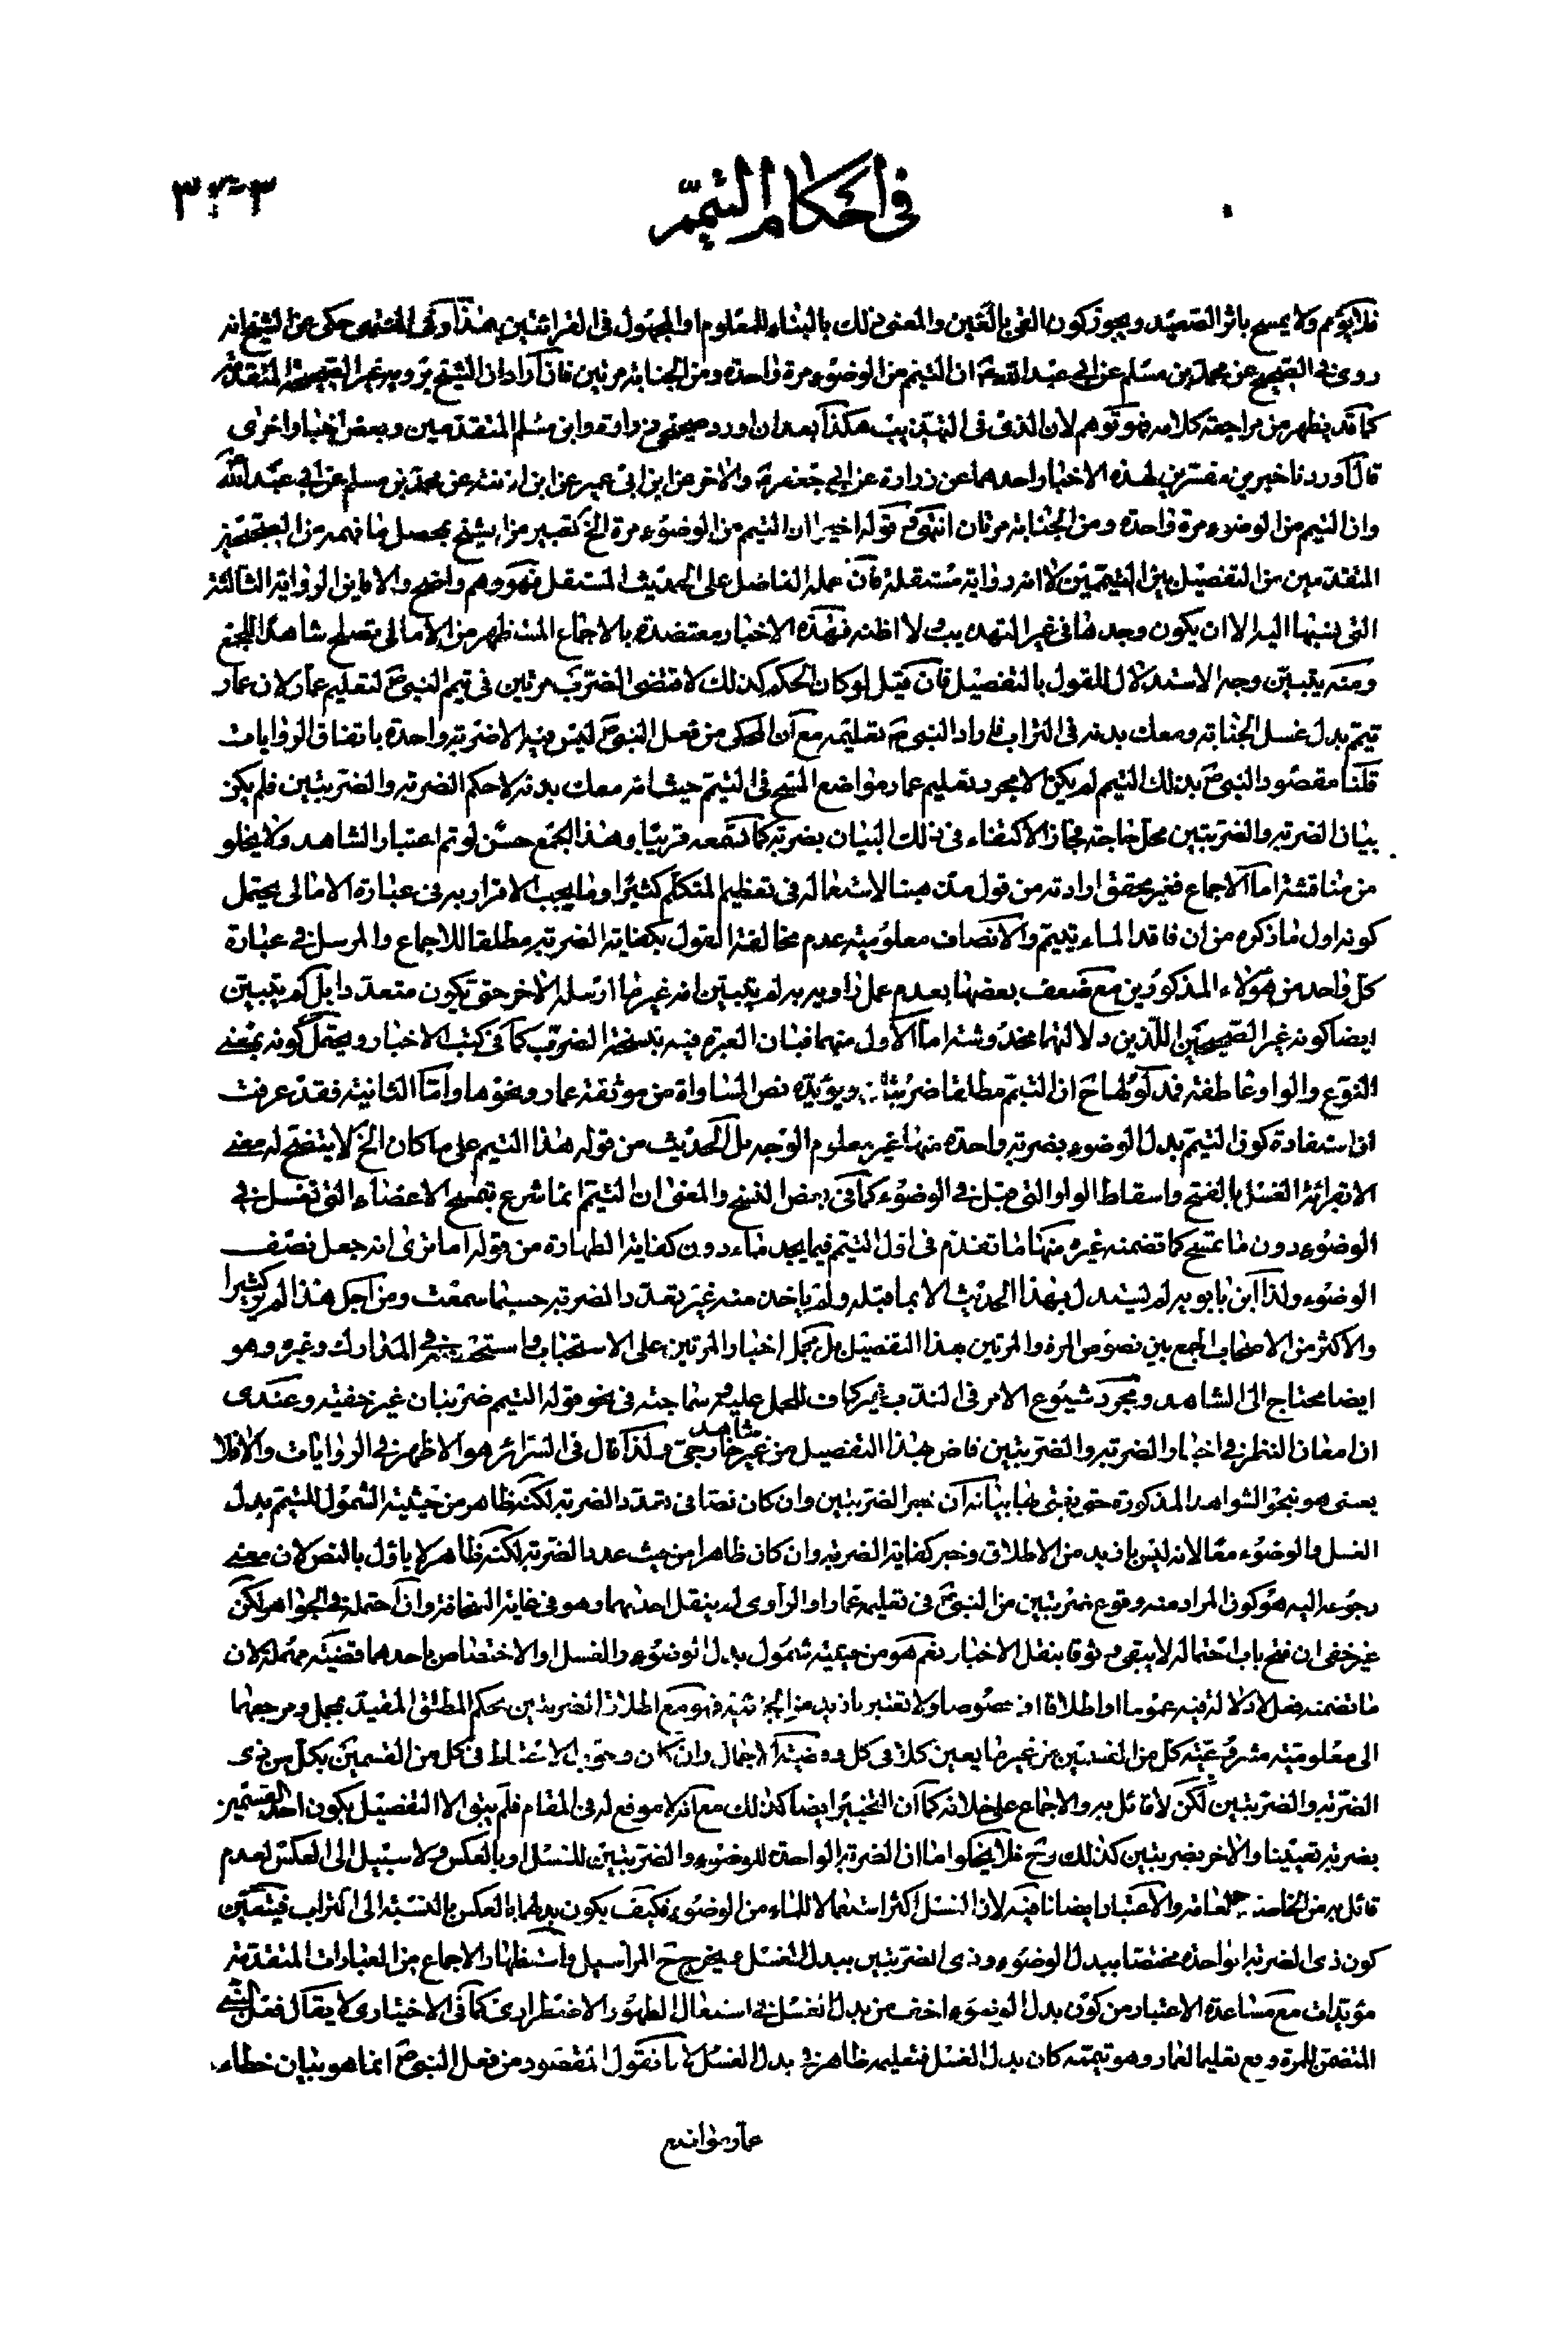 في احكام التيمم
٣٢٣
فلا يؤمم ولا يمسح باثر الصعيد ويجوز كون الغى بالغين والمعنى ذلك بالبناء للمعلوم او المجهول في القرائتين هذا وفى المنتهى حكى عن الشيخ انه
روى في الصحيح عن محمد بن مسلم عن ابي عبد الله ع ان التيمم من الوضوء مرة واحدة ومن الجنابة مرتين فان اراد ان الشيخ يرويه غير الصحيحة المتقدمة
كما قد يظهر من مراجعة كلامه فهو توهم لان الذى فى التهذيب هكذا بعد ان اورد صحيحتى زرارة وابن مسلم المتقدمين وبعض اخبار اخرى
قال اوردنا خبرين مفسرين لهذه الاخبار احدهما عن زرارة عن ابي جعفر ع والاخر عن ابن ابى عمير عن ابن اذينة عن محمد بن مسلم عن ابي عبد الله
وان التيمم من الوضوء مرة واحدة ومن الجنابة مرتان انتهى وقوله اخيرا ان التيمم من الوضوء مرة الخ تعبير من الشيخ بمحصل ما فهمه من الصحيحتين
المتقدمين من التفصيل بين التيممين لا انه رواية مستقلة فان حمله الفاضل على الحديث المستقل فهو وهم واضح والا فاين الرواية الثالثة
التى ينسبها اليه الا ان يكون وجدها في غير التهذيب ولا اظنه فهذه الاخبار معتضدة بالاجماع المستظهر من الامالى تصلح شاهدا للجمع
ومنه يتبين وجه الاستدلال للقول بالتفصيل فان قيل لو كان الحكم كذلك لاقتضى الضرب مرتين في تيمم النبي ص لتعليم عمار لان عمار
تيمم بدل غسل الجنابة ومعك بدنه فى التراب فاراد النبي ص تعليمه مع ان المحكى من فعل النبي ص ليس فيه الا ضربة واحدة باتفاق الروايات
قلنا مقصود النبي ص بذلك التيمم لم يكن الا مجرد تعليم عمار مواضع المسح في التيمم حيث انه معك بدنه لا حكم الضربة والضربتين فلم يكن
بيان الضربة والضربتين محل حاجة فجاز الاكتفاء في ذلك البيان بضربة كما تسمعه قريبا وهذا الجمع حسن لو تم اعتبار الشاهد ولا يخلو
من مناقشة اما الاجماع فغير محقق ارادته من قول مذهبنا لاستعماله فى تعظيم المتكلم كثيرا وما يجب الاقرار به فى عبارة الامالى يحتمل
كونه اول ما ذكره من ان فاقد الماء يتيمم والانصاف معلومية عدم مخالفة القول بكفاية الضربة مطلقا للاجماع والمرسل في عبارة
كل واحد من هؤلاء المذكورين مع ضعف بعضها بعدم عمل راويه به لم يتبين انه غير ما ارسله الاخر حتى تكون متعددا بل لم يتبين
ايضا كونه غير الصحيحين اللذين دلالتهما مخدوشة اما الاول منهما فبان العبرة فيه بنسخة الضرب كما في كتب الاخبار ويحتمل كونه بمعنى
النوع والواو عاطفة فمدلولها ح ان التيمم مطلقا ضربتان ويؤيده نص المساواة من موثقة عمار ونحوها واما الثانية فقد عرفت
ان استفادة كون التيمم بدل الوضوء بضربة واحدة منها غير معلوم الوجه بل الحديث من قوله هذا التيمم على ما كان الخ لا يتضح له معنى
الا بقرائة الغسل بالفتح واسقاط الواو التى قبل في الوضوء كما في بعض النسخ والمعنى ان التيمم انما شرع بمسح الاعضاء التى تغسل في
الوضوء دون ما تمسح كما تضمنه غيره منها ما تقدم فى اول التيمم فيما يجد ماء دون كفاية الطهارة من قوله اما ترى انه جعل نصف
الوضوء ولذا ابن بابويه لم يستدل بهذا الحديث الا بما قبله ولم ياخذ منه غير تعدد الضربة حسبما سمعت ومن اجل هذا لم ير كثير
والاكثر من الاصحاب الجمع بين نصوص المرة والمرتين بهذا التفصيل بل بحمل اخبار المرتين على الاستحباب واستحسنه في المدارك وغيره وهو
ايضا محتاج الى الشاهد ومجرد شيوع الامر فى الندب غير كاف للحمل عليه مع سماجته فى نحو قوله التيمم ضربتان غير خفية وعندى
ان امعان النظر في اخبار الضربة والضربتين قاض بهذا التفصيل من غير شاهد خارجي ولذا قال فى السرائر هو الاظهر في الروايات والا فلا
يعنى هو بنحو الشواهد المذكورة حتى يفتى بها بيانه ان خبر الضربتين وان كان نصا فى تعدد الضربة لكنه ظاهر من حيثية الشمول للتيمم بدل
الغسل والوضوء معا لانه ليس بازيد من الاطلاق وخبر كفاية الضربة وان كان ظاهرا من حيث عدد الضربة لكنه ظاهر لا ياول بالنص لان معنى
رجوعه اليه هو كون المراد منه وقوع ضربتين من النبي ص فى تعليمه عمارا والراوى لم ينقل احديهما وهو فى غاية السخافة وان احتمله في الجواهر لكن
غير خفى ان فتح باب احتماله لا يبقى وثوقا بنقل الاخبار نعم هو من حيثية شمول بدل الوضوء والغسل او الاختصاص باحدهما قضية مهملة لان
ما تضمنه فعل لا دلالة فيه عموما او اطلاقا او خصوصا ولا تعتبر بازيد من الجزئية فهو مع اطلاق الضربتين بحكم المطلق المقيد بمجمل ومرجعهما
الى معلومية مشروعية كل من القسمين من غير ما يعين كلا فى كل وقضية الاجمال وان كان وجوب الاحتياط فى كل من القسمين بكل من ذى
الضربة والضربتين لكن لا قائل به والاجماع على خلافه كما ان التخيير ايضا كذلك مع انه لا موقع له فى المقام فلم يبق الا التفصيل بكون احد القسمين
بضربة تعيينا والاخر بضربتين كذلك وح فلا يخلو اما ان الضربة الواحدة للوضوء والضربتين للغسل او بالعكس ولا سبيل الى العكس لعدم
قائل به من الخاصة والعامة والاعتبار ايضا ينافيه لان الغسل اكثر استعمالا للماء من الوضوء فكيف يكون بدلهما بالعكس بالنسبة الى التراب فيتعين
كون ذى الضربة الواحدة مختصا ببدل الوضوء وذى الضربتين ببدل الغسل ويخرج ح المراسيل واستظهار الاجماع من العبارات المتقدمة
مؤيدات مع مساعدة الاعتبار من كون بدل الوضوء اخف من بدل الغسل في استعمال الطهور الاضطرارى كما فى الاختيارى لا يقال فعل النبي
المتضمن للمرة وقع تعليما لعمار وهو تيممه كان بدل الغسل فتعليمه ظاهر في بدل الغسل لانا نقول المقصود من فعل النبي ص انما هو بيان خطاء
عمار مواضع